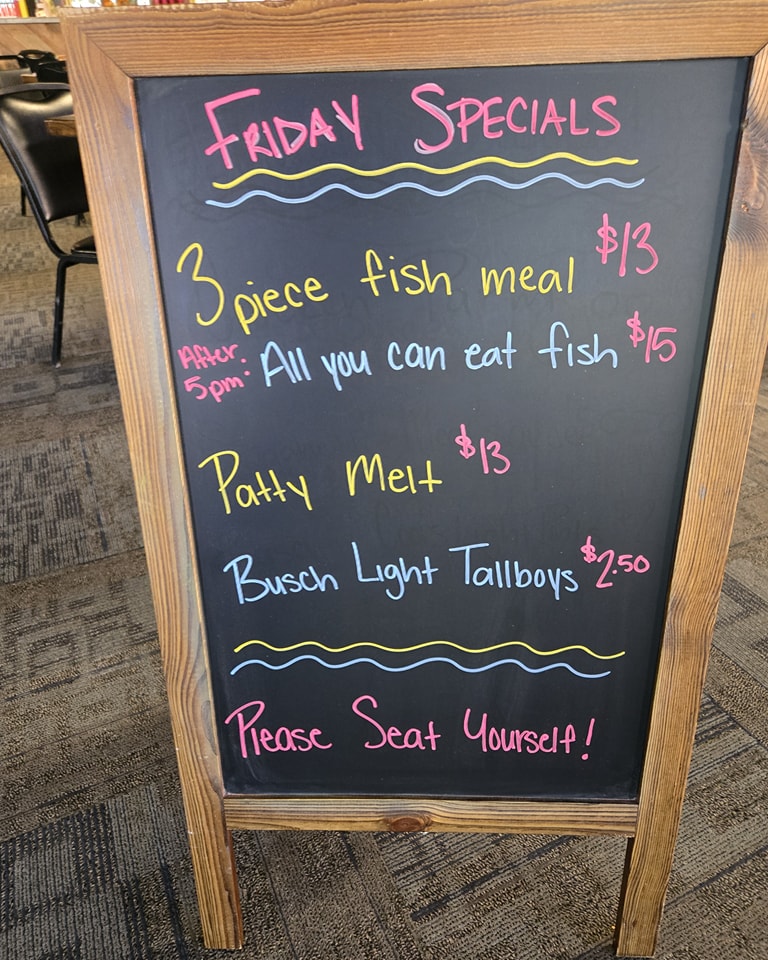 Friday Specials
3 piece fish meal $13
After 5pm: All you can eat fish $15
Patty Melt $13
Busch Light Tallboys $2.50
Please Seat Yourself!